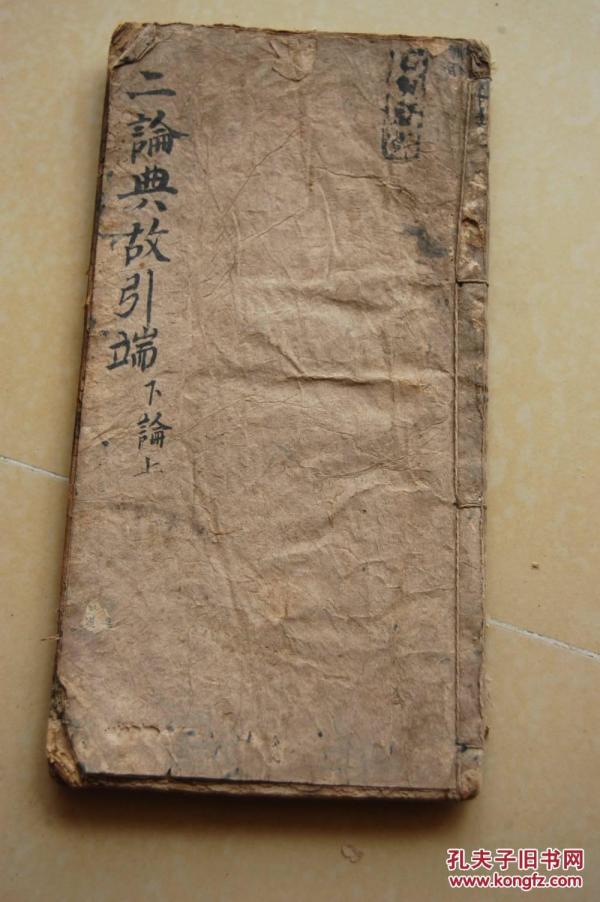 二論典故引端
下論上
孔夫子旧书网
www.kongfz.com